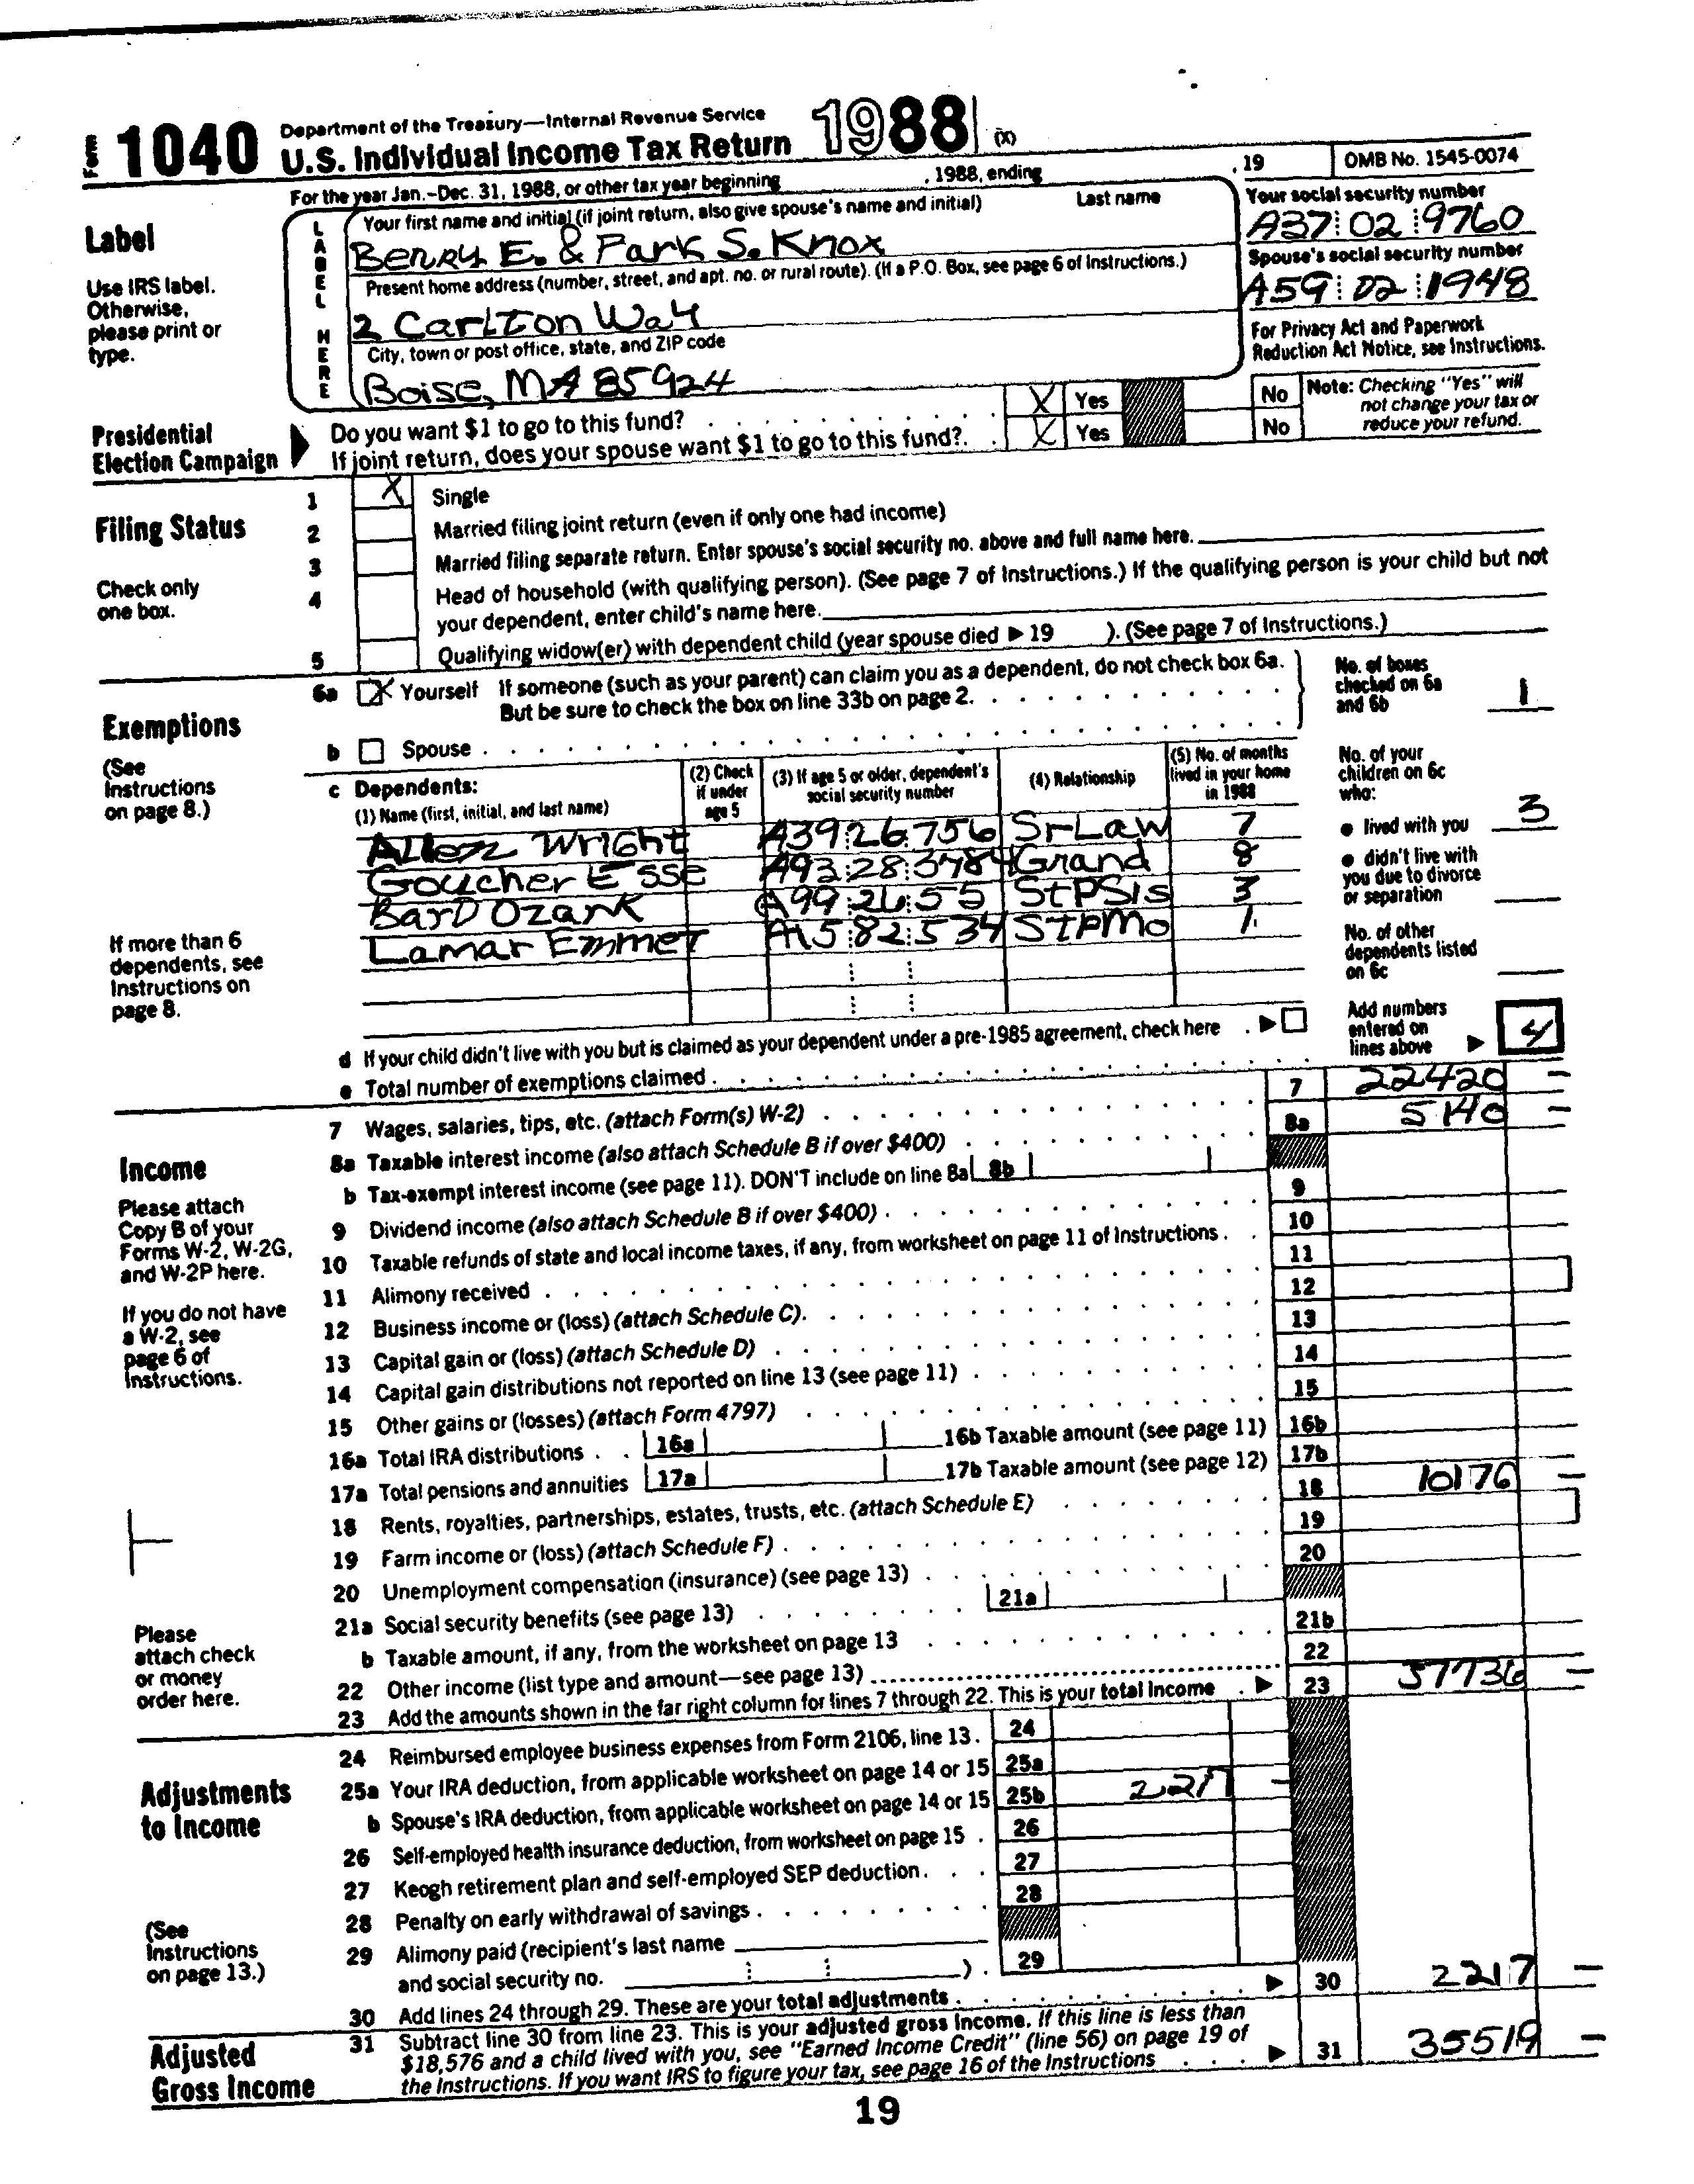 Form 1040 Department of the Treasury—Internal Revenue Service
U.S. Individual Income Tax Return 1988 (X)
For the year Jan.-Dec. 31, 1988, or other tax year beginning , 1988, ending , 19 OMB No. 1545-0074
Label
Use IRS label. Otherwise, please print or type.
LABEL HERE
Your first name and initial (if joint return, also give spouse's name and initial) Last name
Berry E. & Park S. Knox
Your social security number
A37 02 9760
Present home address (number, street, and apt. no. or rural route). (If a P.O. Box, see page 6 of Instructions.)
2 Carlton Way
Spouse's social security number
A59 02 1948
City, town or post office, state, and ZIP code
Boise, MA 85924
For Privacy Act and Paperwork
Reduction Act Notice, see Instructions.
Presidential
Election Campaign
Do you want $1 to go to this fund? X Yes No
If joint return, does your spouse want $1 to go to this fund? X Yes No
Note: Checking "Yes" will
not change your tax or
reduce your refund.
Filing Status
Check only
one box.
1 X Single
2 Married filing joint return (even if only one had income)
3 Married filing separate return. Enter spouse's social security no. above and full name here.
4 Head of household (with qualifying person). (See page 7 of Instructions.) If the qualifying person is your child but not
your dependent, enter child's name here.
5 Qualifying widow(er) with dependent child (year spouse died ▶ 19 ). (See page 7 of Instructions.)
Exemptions
(See
Instructions
on page 8.)
6a X Yourself If someone (such as your parent) can claim you as a dependent, do not check box 6a.
But be sure to check the box on line 33b on page 2.
b Spouse
No. of boxes
checked on 6a
and 6b 1
c Dependents:
(1) Name (first, initial, and last name)
(2) Check
if under
age 5
(3) If age 5 or older, dependent's
social security number
(4) Relationship
(5) No. of months
lived in your home
in 1988
Allen Wright A39 26 756 SrLaw 7
Goucher Esse A93 28 3784 Grand 8
Bard Ozark A99 26 55 StPSis 3
Lamar Emmet A15 82 534 StPMo 1
If more than 6
dependents, see
Instructions on
page 8.
No. of your
children on 6c
who:
● lived with you 3
● didn't live with
you due to divorce
or separation
No. of other
dependents listed
on 6c
Add numbers
entered on
lines above ▶ 4
d If your child didn't live with you but is claimed as your dependent under a pre-1985 agreement, check here ▶
e Total number of exemptions claimed
Income
Please attach
Copy B of your
Forms W-2, W-2G,
and W-2P here.
If you do not have
a W-2, see
page 6 of
Instructions.
Please
attach check
or money
order here.
7 Wages, salaries, tips, etc. (attach Form(s) W-2) 7 22420 –
8a Taxable interest income (also attach Schedule B if over $400) 8a 5140 –
b Tax-exempt interest income (see page 11). DON'T include on line 8a 8b
9 Dividend income (also attach Schedule B if over $400) 9
10 Taxable refunds of state and local income taxes, if any, from worksheet on page 11 of Instructions 10
11 Alimony received 11
12 Business income or (loss) (attach Schedule C) 12
13 Capital gain or (loss) (attach Schedule D) 13
14 Capital gain distributions not reported on line 13 (see page 11) 14
15 Other gains or (losses) (attach Form 4797) 15
16a Total IRA distributions 16a 16b Taxable amount (see page 11) 16b
17a Total pensions and annuities 17a 17b Taxable amount (see page 12) 17b
18 Rents, royalties, partnerships, estates, trusts, etc. (attach Schedule E) 18 10176 –
19 Farm income or (loss) (attach Schedule F) 19
20 Unemployment compensation (insurance) (see page 13) 20
21a Social security benefits (see page 13) 21a
b Taxable amount, if any, from the worksheet on page 13 21b
22 Other income (list type and amount—see page 13) 22
23 Add the amounts shown in the far right column for lines 7 through 22. This is your total income ▶ 23 37736 –
Adjustments
to Income
(See
Instructions
on page 13.)
24 Reimbursed employee business expenses from Form 2106, line 13 24
25a Your IRA deduction, from applicable worksheet on page 14 or 15 25a
b Spouse's IRA deduction, from applicable worksheet on page 14 or 15 25b 2217 –
26 Self-employed health insurance deduction, from worksheet on page 15 26
27 Keogh retirement plan and self-employed SEP deduction 27
28 Penalty on early withdrawal of savings 28
29 Alimony paid (recipient's last name
and social security no. ) 29
30 Add lines 24 through 29. These are your total adjustments ▶ 30 2217 –
Adjusted
Gross Income
31 Subtract line 30 from line 23. This is your adjusted gross income. If this line is less than
$18,576 and a child lived with you, see "Earned Income Credit" (line 56) on page 19 of
the Instructions. If you want IRS to figure your tax, see page 16 of the Instructions ▶ 31 35519 –
19